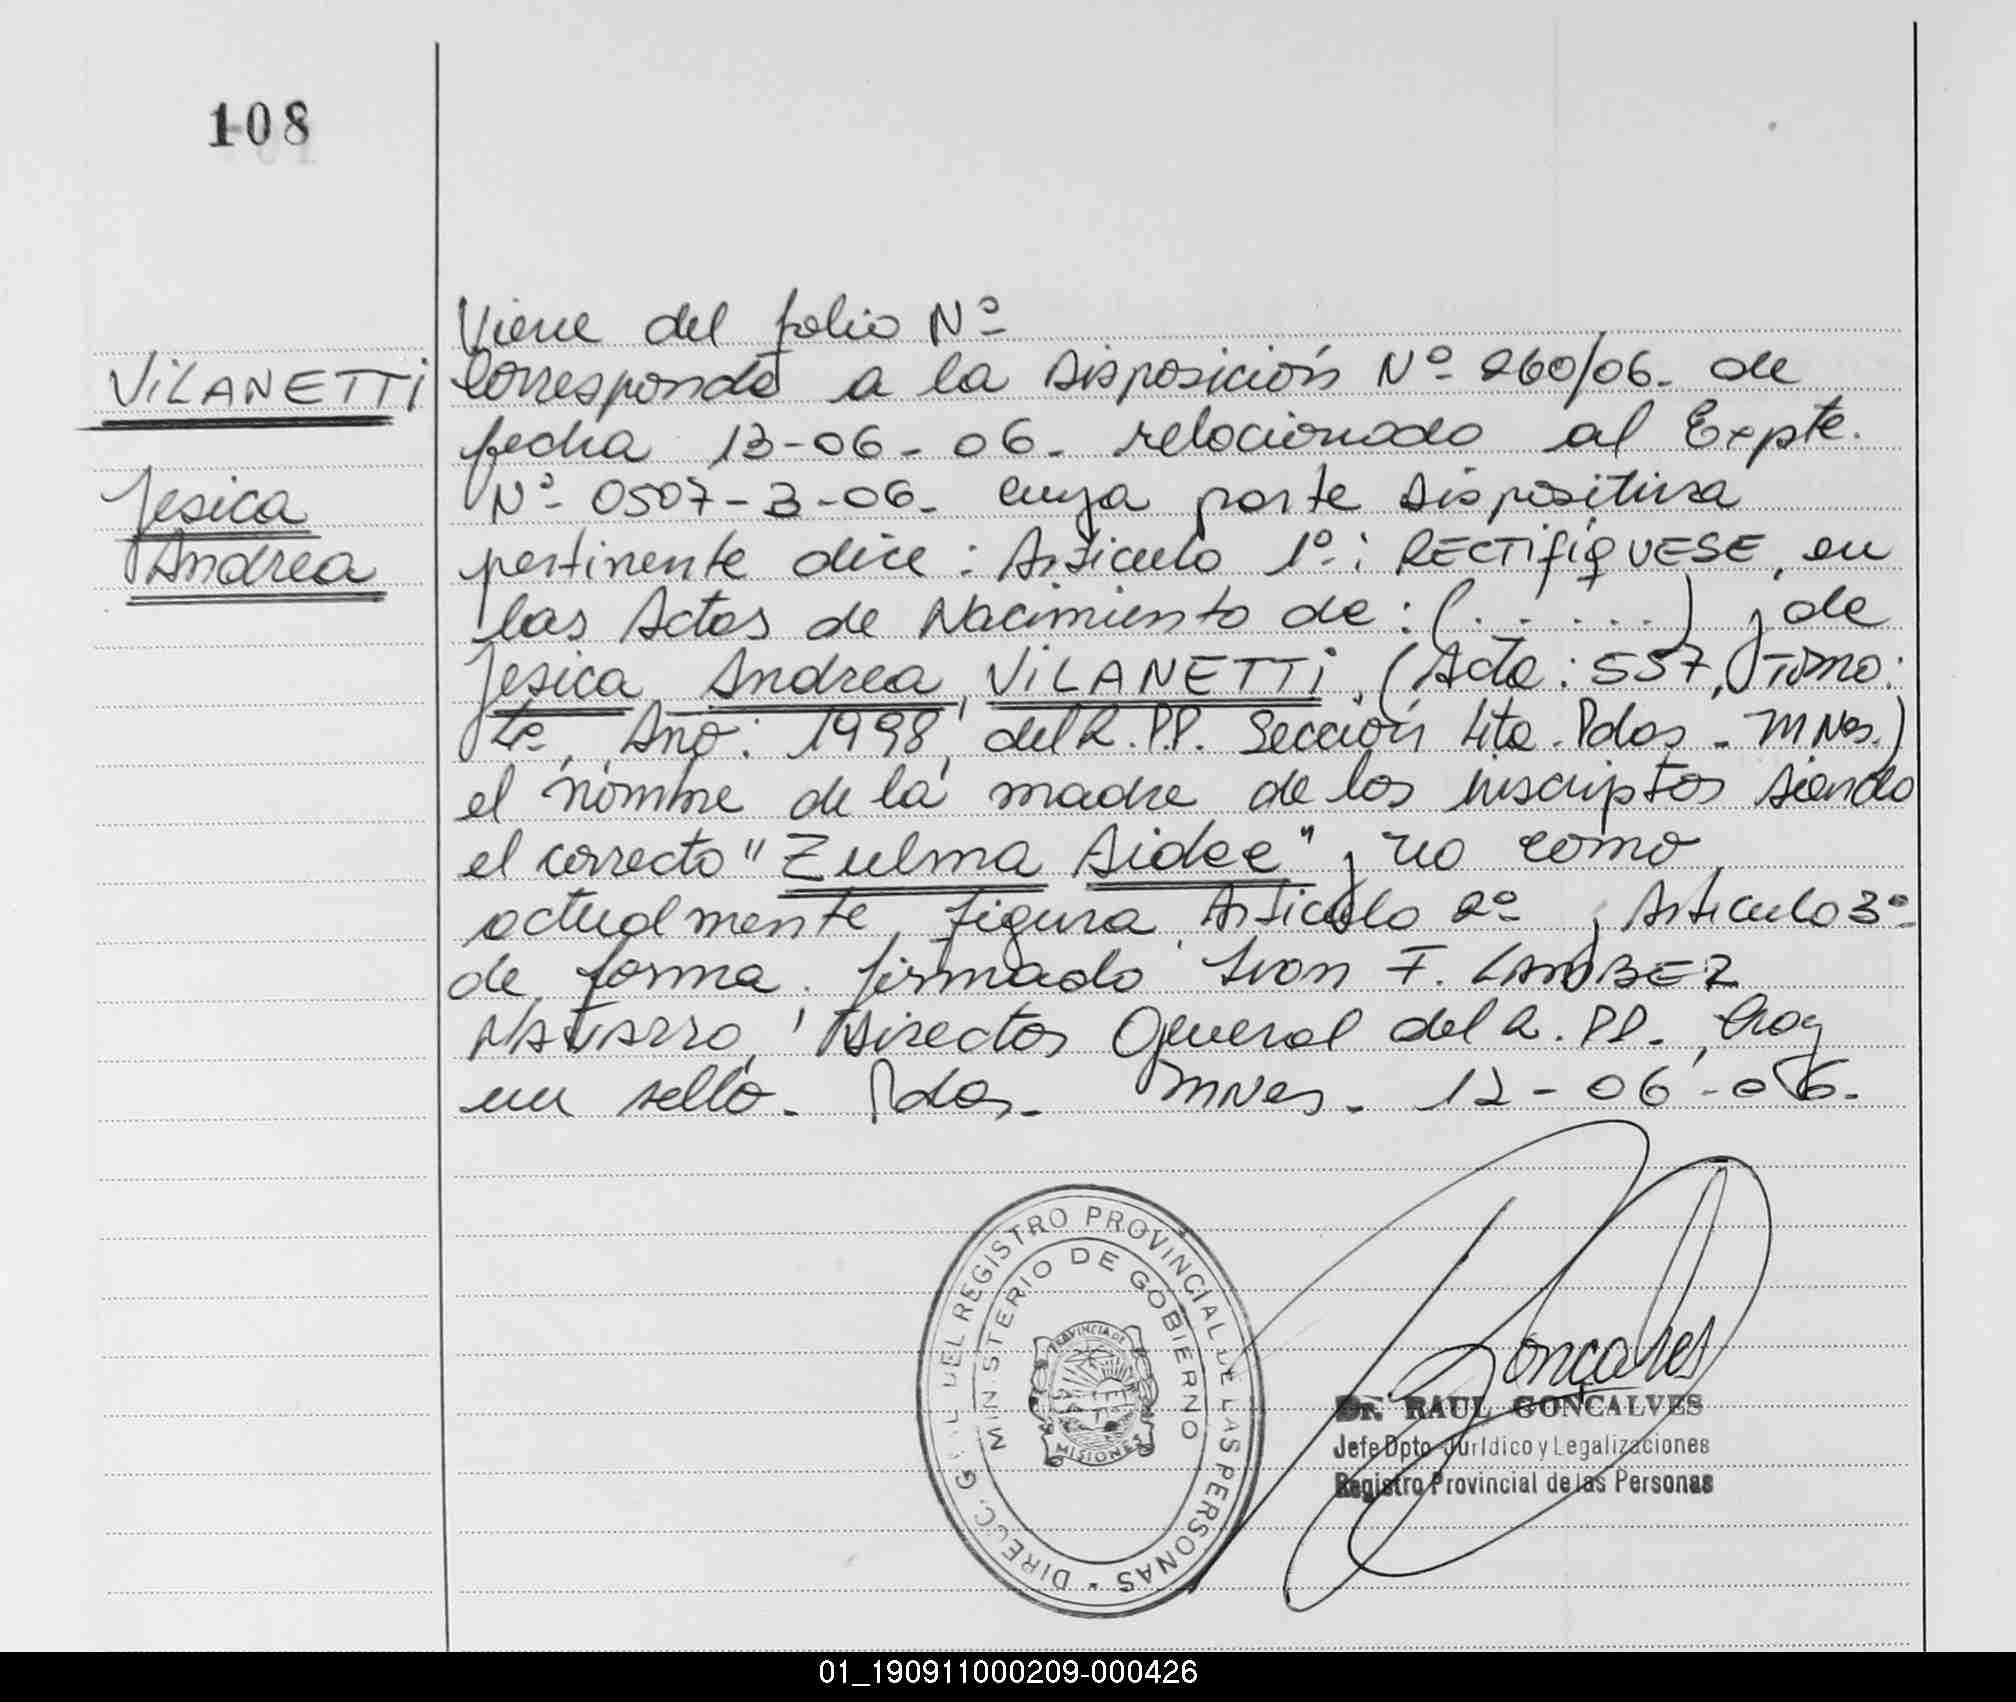 108
VILANETTI
Jesica
Andrea
Viene del folio Nº
Corresponde a la Disposición Nº 260/06. de
fecha 13-06-06. relacionado al Expte.
Nº 0507-3-06. cuya parte dispositiva
pertinente dice: Articulo 1º: RECTIFIQUESE, en
las Actas de Nacimiento de: (......) y de
Jesica Andrea VILANETTI. (Acta: 557, Tomo:
Año: 1998, del R.P.P. Sección 4ta. Pdas - MNes.)
el nombre de la madre de los inscriptos siendo
el correcto "Zulma Aidee" y no como
actualmente figura. Articulo 2º y Articulo 3º
de forma. firmado Ivan F.
Navarro, Director General del R.PP., hay
un sello. Pdas. MNes. 12-06-06.
DIRECC. GRAL DEL REGISTRO PROVINCIAL DE LAS PERSONAS
MINISTERIO DE GOBIERNO
PROVINCIA DE
MISIONES
Gonçalves
Dr. RAUL GONÇALVES
Jefe Dpto Jurídico y Legalizaciones
Registro Provincial de las Personas
01_190911000209-000426